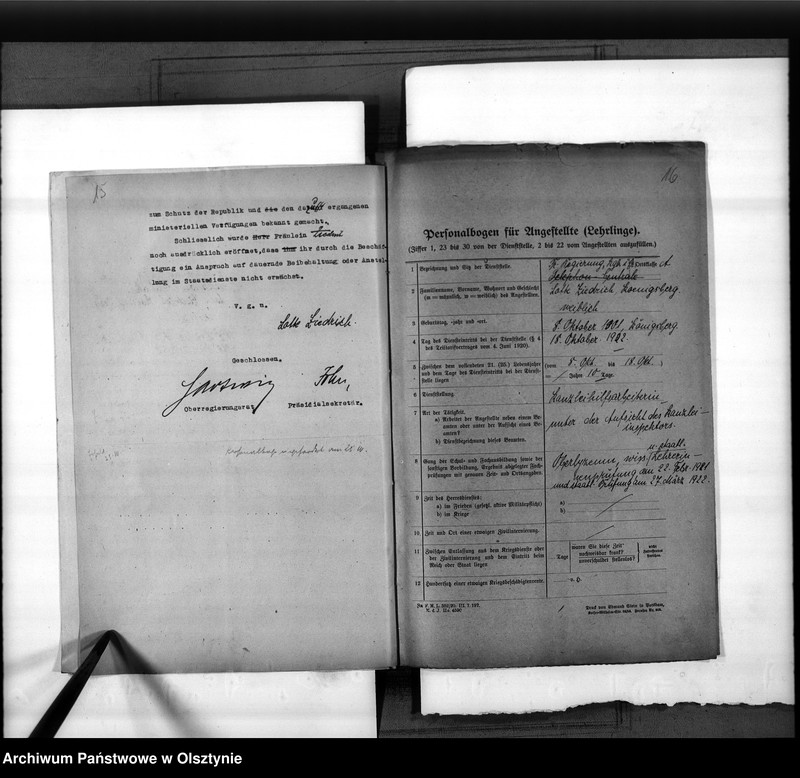 15
zum Schutz der Republik und die den dazu ergangenen
ministeriellen Verfügungen bekannt gemacht.
Schliesslich wurde Herr Fräulein Liedrich
noch ausdrücklich eröffnet, dass ihm ihr durch die Beschäf-
tigung ein Anspruch auf dauernde Beibehaltung oder Anstel-
lung im Staatsdienste nicht erwächst.
V. g. u.
Lotte Liedrich.
Geschlossen.
Oberregierungsrat
Präsidialsekretär.
16
Personalbogen für Angestellte (Lehrlinge).
(Ziffer 1, 23 bis 30 von der Dienststelle, 2 bis 22 vom Angestellten auszufüllen.)
1 Bezeichnung und Sitz der Dienststelle.
Regierung, Kgb. i/Pr. Ortsklasse A
Telephon-Zentrale
2 Familienname, Vorname, Wohnort und Geschlecht
(m = männlich, w = weiblich) des Angestellten.
Lotte Liedrich Koenigsberg
weiblich
3 Geburtstag, -jahr und -ort.
8. Oktober 1901, Königsberg.
4 Tag des Diensteintritts bei der Dienststelle (§ 4
des Teiltarifvertrages vom 4. Juni 1920).
18. Oktober 1922.
5 Zwischen dem vollendeten 21. (25.) Lebensjahre
und dem Tage des Diensteintritts bei der Dienst-
stelle liegen
(vom 8. Okt. bis 18. Okt.)
= / Jahre 10 Tage
6 Dienststellung.
Kanzleihilfsarbeiterin
7 Art der Tätigkeit.
a) Arbeitet der Angestellte neben einem Be-
amten oder unter der Aufsicht eines Be-
amten?
b) Dienstbezeichnung dieses Beamten.
unter der Aufsicht des Kanzlei-
inspektors.
8 Gang der Schul- und Fachausbildung sowie der
sonstigen Vorbildung, Ergebnis abgelegter Fach-
prüfungen mit genauen Zeit- und Ortsangaben.
Oberlyzeum, wiss. u. staatl. Lehrerin-
nenprüfung am 22. Febr. 1921
und staatl. Prüfung am 27. März 1922.
9 Zeit des Heeresdienstes:
a) im Frieden (gesetzl. aktive Militärpflicht)
b) im Kriege
a)
b)
10 Zeit und Ort einer etwaigen Zivilinternierung.
11 Zwischen Entlassung aus dem Kriegsdienste oder
der Zivilinternierung und dem Eintritt beim
Reich oder Staat liegen
Tage
waren Sie diese Zeit
nachweisbar krank?
unverschuldet stellenlos?
12 Hundertsatz einer etwaigen Kriegsbeschädigtenrente.
v. H.